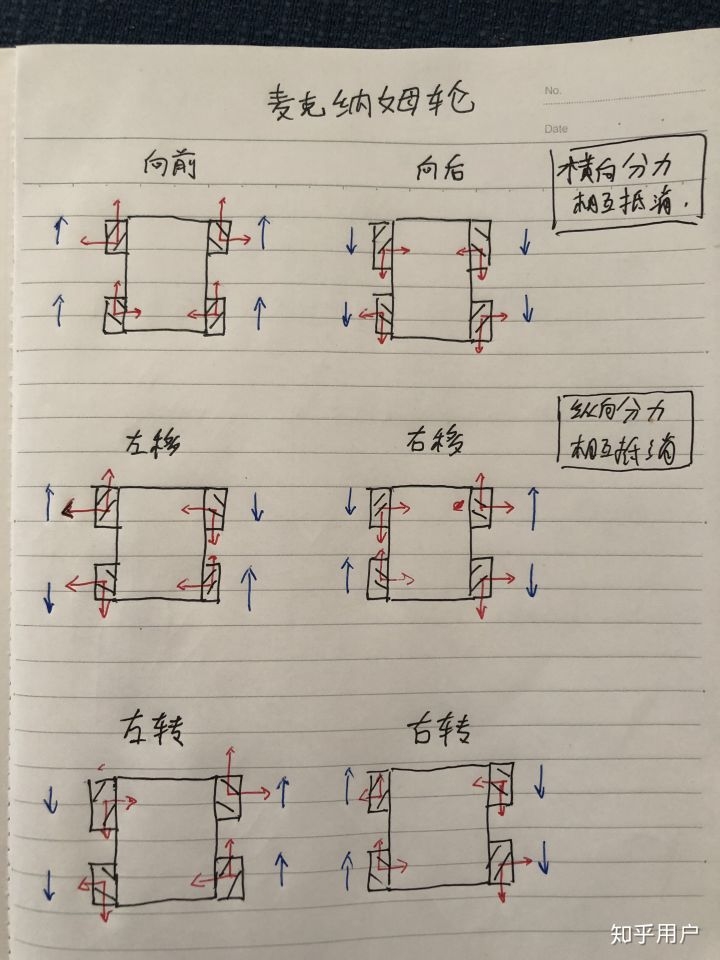 麦克纳姆轮
No.
Date
向前
向后
横向分力
相互抵消.
左移
右移
纵向分力
相互抵消
左转
右转
知乎用户